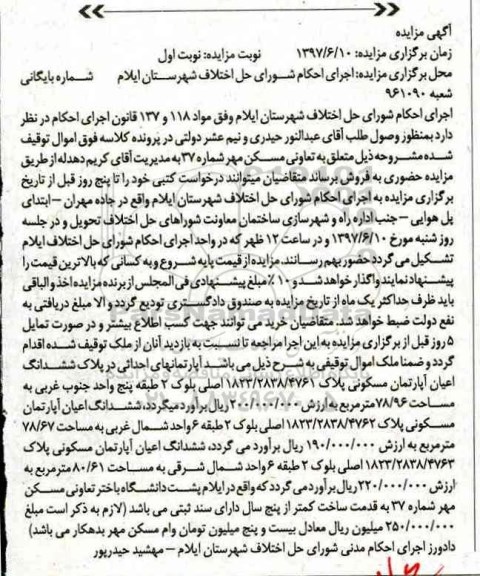 آگهی مزایده
زمان برگزاری مزایده: ۱۳۹۷/۶/۱۰ نوبت مزایده: نوبت اول
محل برگزاری مزایده: اجرای احکام شورای حل اختلاف شهرستان ایلام شماره بایگانی
شعبه ۹۶۱۰۹۰
اجرای احکام شورای حل اختلاف شهرستان ایلام وفق مواد ۱۱۸ و ۱۳۷ قانون اجرای احکام در نظر
دارد بمنظور وصول طلب آقای عبدالنور حیدری و نیم عشر دولتی در پرونده کلاسه فوق اموال توقیف
شده مشروحه ذیل متعلق به تعاونی مسکن مهر شماره ۳۷ به مدیریت آقای کریم دهدله از طریق
مزایده حضوری به فروش برساند متقاضیان میتوانند درخواست کتبی خود را تا پنج روز قبل از تاریخ
برگزاری مزایده به اجرای احکام شورای حل اختلاف شهرستان ایلام واقع در جاده مهران – ابتدای
پل هوایی – جنب اداره راه و شهرسازی ساختمان معاونت شوراهای حل اختلاف تحویل و در جلسه
روز شنبه مورخ ۱۳۹۷/۶/۱۰ و در ساعت ۱۲ ظهر که در واحد اجرای احکام شورای حل اختلاف ایلام
تشکیل می گردد حضور بهم رسانند. مزایده از قیمت پایه شروع و به کسانی که بالاترین قیمت را
پیشنهاد نمایند واگذار خواهد شد و ۱۰٪ مبلغ پیشنهادی فی المجلس از برنده مزایده اخذ و الباقی
باید ظرف حداکثر یک ماه از تاریخ مزایده به صندوق دادگستری تودیع گردد و الا مبلغ دریافتی به
نفع دولت ضبط خواهد شد. متقاضیان خرید می توانند جهت کسب اطلاع بیشتر و در صورت تمایل
۵ روز قبل از برگزاری مزایده به این اجرا مراجعه تا نسبت به بازدید آنان از ملک توقیف شده اقدام
گردد و ضمنا ملک اموال توقیفی به شرح ذیل می باشد آپارتمانهای احداثی در پلاک ششدانگ
اعیان آپارتمان مسکونی پلاک ۱۸۲۳/۲۸۳۸/۴۷۶۱ اصلی بلوک ۲ طبقه پنج واحد جنوب غربی به
مساحت ۷۸/۹۶ مترمربع به ارزش ۲۰۰/۰۰۰/۰۰۰ ریال برآورد میگردد، ششدانگ اعیان آپارتمان
مسکونی پلاک ۱۸۲۳/۲۸۳۸/۴۷۶۲ اصلی بلوک ۲ طبقه ۶ واحد شمال غربی به مساحت ۷۸/۶۷
مترمربع به ارزش ۱۹۰/۰۰۰/۰۰۰ ریال برآورد می گردد، ششدانگ اعیان آپارتمان مسکونی پلاک
۱۸۲۳/۲۸۳۸/۴۷۶۳ اصلی بلوک ۲ طبقه ۶ واحد شمال شرقی به مساحت ۸۰/۶۱ مترمربع به
ارزش ۲۲۰/۰۰۰/۰۰۰ ریال برآورد می گردد که واقع در ایلام پشت دانشگاه باختر تعاونی مسکن
مهر شماره ۳۷ به قدمت ساخت کمتر از پنج سال دارای سند ثبتی می باشد (لازم به ذکر است مبلغ
۲۵۰/۰۰۰/۰۰۰ میلیون ریال معادل بیست و پنج میلیون تومان وام مسکن مهر بدهکار می باشد)
دادورز اجرای احکام مدنی شورای حل اختلاف شهرستان ایلام – مهشید حیدرپور